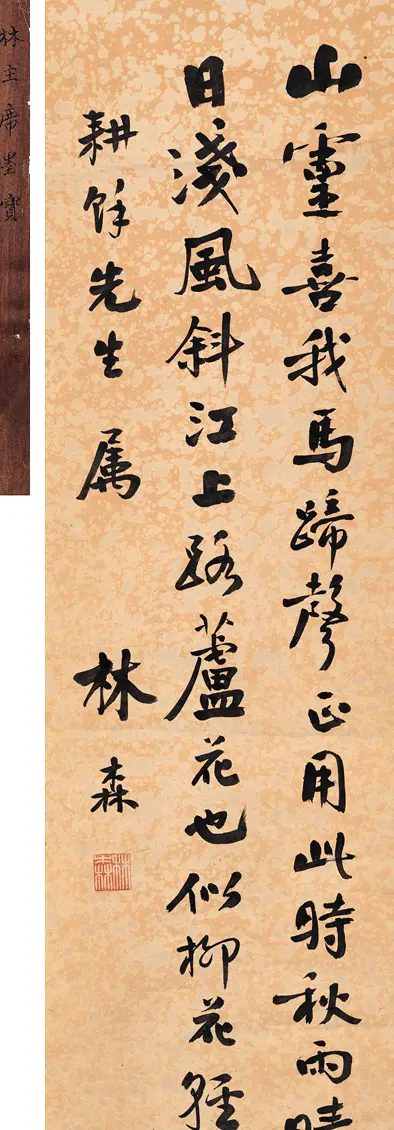 山靈喜我馬蹄聲正用此時秋雨
日淺風斜江上路蘆花也似柳花輕
耕餘先生属
林森
林森
林主席墨寶